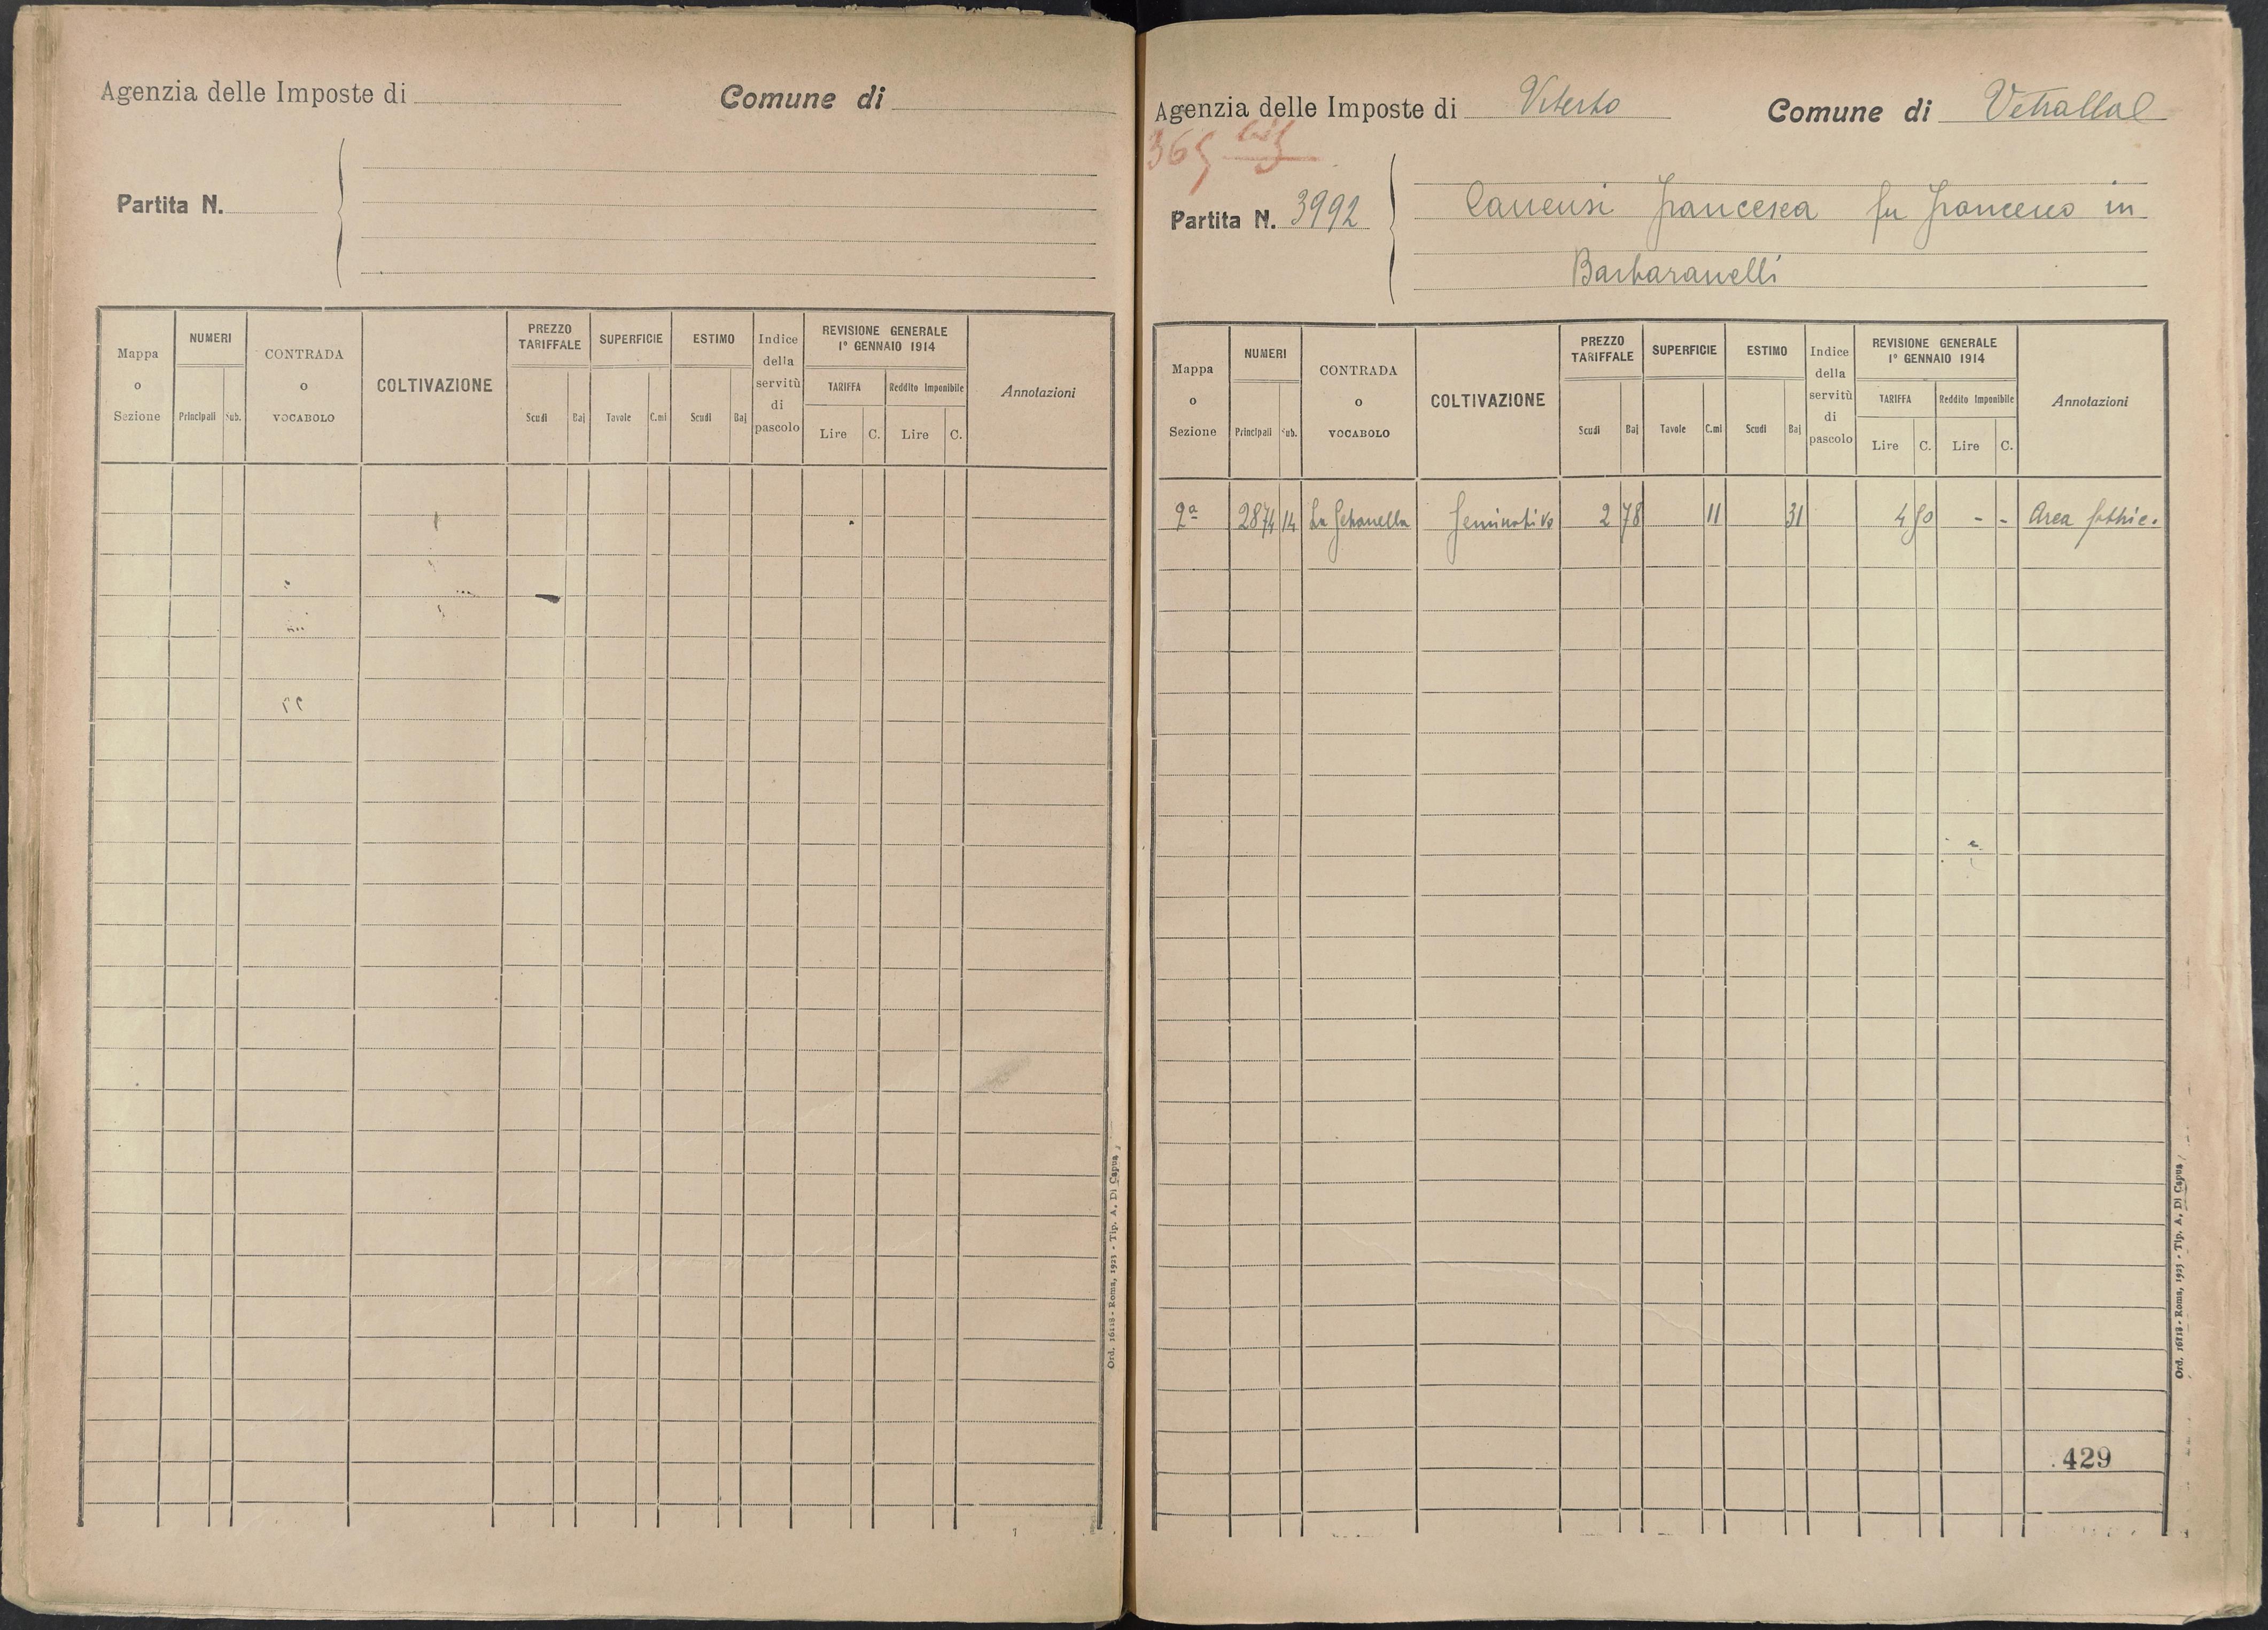 Agenzia delle Imposte di
Comune di
Partita N.
Mappa o Sezione
NUMERI
Principali
Sub.
CONTRADA o VOCABOLO
COLTIVAZIONE
PREZZO TARIFFALE
Scudi
Baj
SUPERFICIE
Tavole
C.mi
ESTIMO
Scudi
Baj
Indice della servitù di pascolo
REVISIONE GENERALE
1° GENNAIO 1914
TARIFFA
Reddito Imponibile
Lire
C.
Lire
C.
Annotazioni
Ord. 16118 - Roma, 1923 - Tip. A. Di Capua
Agenzia delle Imposte di Viterbo
Comune di Vetralla
365 bis
Partita N. 3992
Canensi Francesca fu Francesco in
Barbaranelli
Mappa o Sezione
NUMERI
Principali
Sub.
CONTRADA o VOCABOLO
COLTIVAZIONE
PREZZO TARIFFALE
Scudi
Baj
SUPERFICIE
Tavole
C.mi
ESTIMO
Scudi
Baj
Indice della servitù di pascolo
REVISIONE GENERALE
1° GENNAIO 1914
TARIFFA
Reddito Imponibile
Lire
C.
Lire
C.
Annotazioni
2a 2874 14 La Seminativo 2 78 11 31 4 50 - - Area fabbric.
429
Ord. 16118 - Roma, 1923 - Tip. A. Di Capua